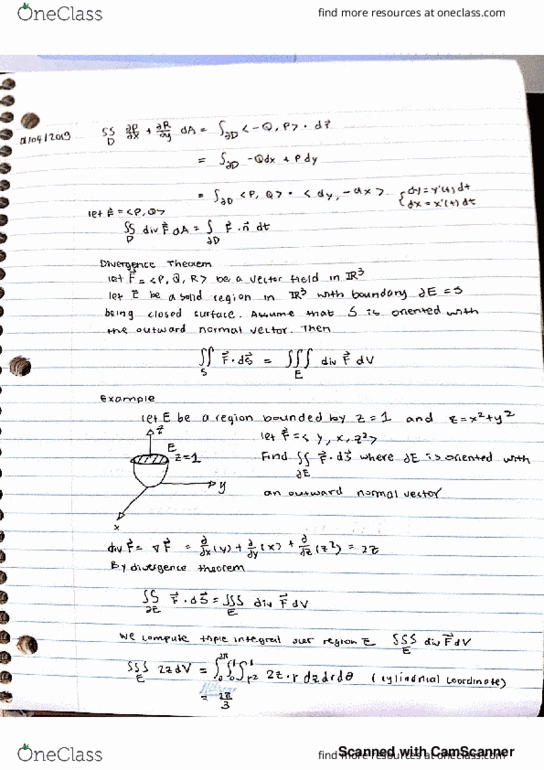 OneClass
find more resources at oneclass.com
01/04/2019 ∬_D ∂P/∂x + ∂R/∂y dA = ∫_∂D <-Q, P> · dr⃗
= ∫_∂D -Qdx + P dy
= ∫_∂D <P, Q> · <dy, -dx> { dy = y'(t) dt
dx = x'(t) dt
let F⃗ = <P, Q>
∬_D div F⃗ dA = ∫_∂D F⃗ · n⃗ dt
Divergence Theorem
let F⃗ = <P, Q, R> be a vector field in ℝ³
let E be a solid region in ℝ³ with boundary ∂E = S
being closed surface. Assume that S is oriented with
the outward normal vector. Then
∬_S F⃗ · dS⃗ = ∭_E div F⃗ dV
Example
let E be a region bounded by z = 1 and z = x² + y²
let F⃗ = < y, x, z²>
Find ∬_∂E F⃗ · dS⃗ where ∂E is oriented with
an outward normal vector
z
E
z=1
y
x
div F⃗ = ∇F⃗ = ∂/∂x (y) + ∂/∂y (x) + ∂/∂z (z²) = 2z
By divergence theorem
∬_∂E F⃗ · dS⃗ = ∭_E div F⃗ dV
we compute triple integral over region E ∭_E div F⃗ dV
∭_E 2z dV = ∫_0^2π ∫_0^1 ∫_r²^1 2z · r dz dr dθ (cylindrical coordinate)
= 2π/3
Scanned with CamScanner
OneClass
find more resources at oneclass.com